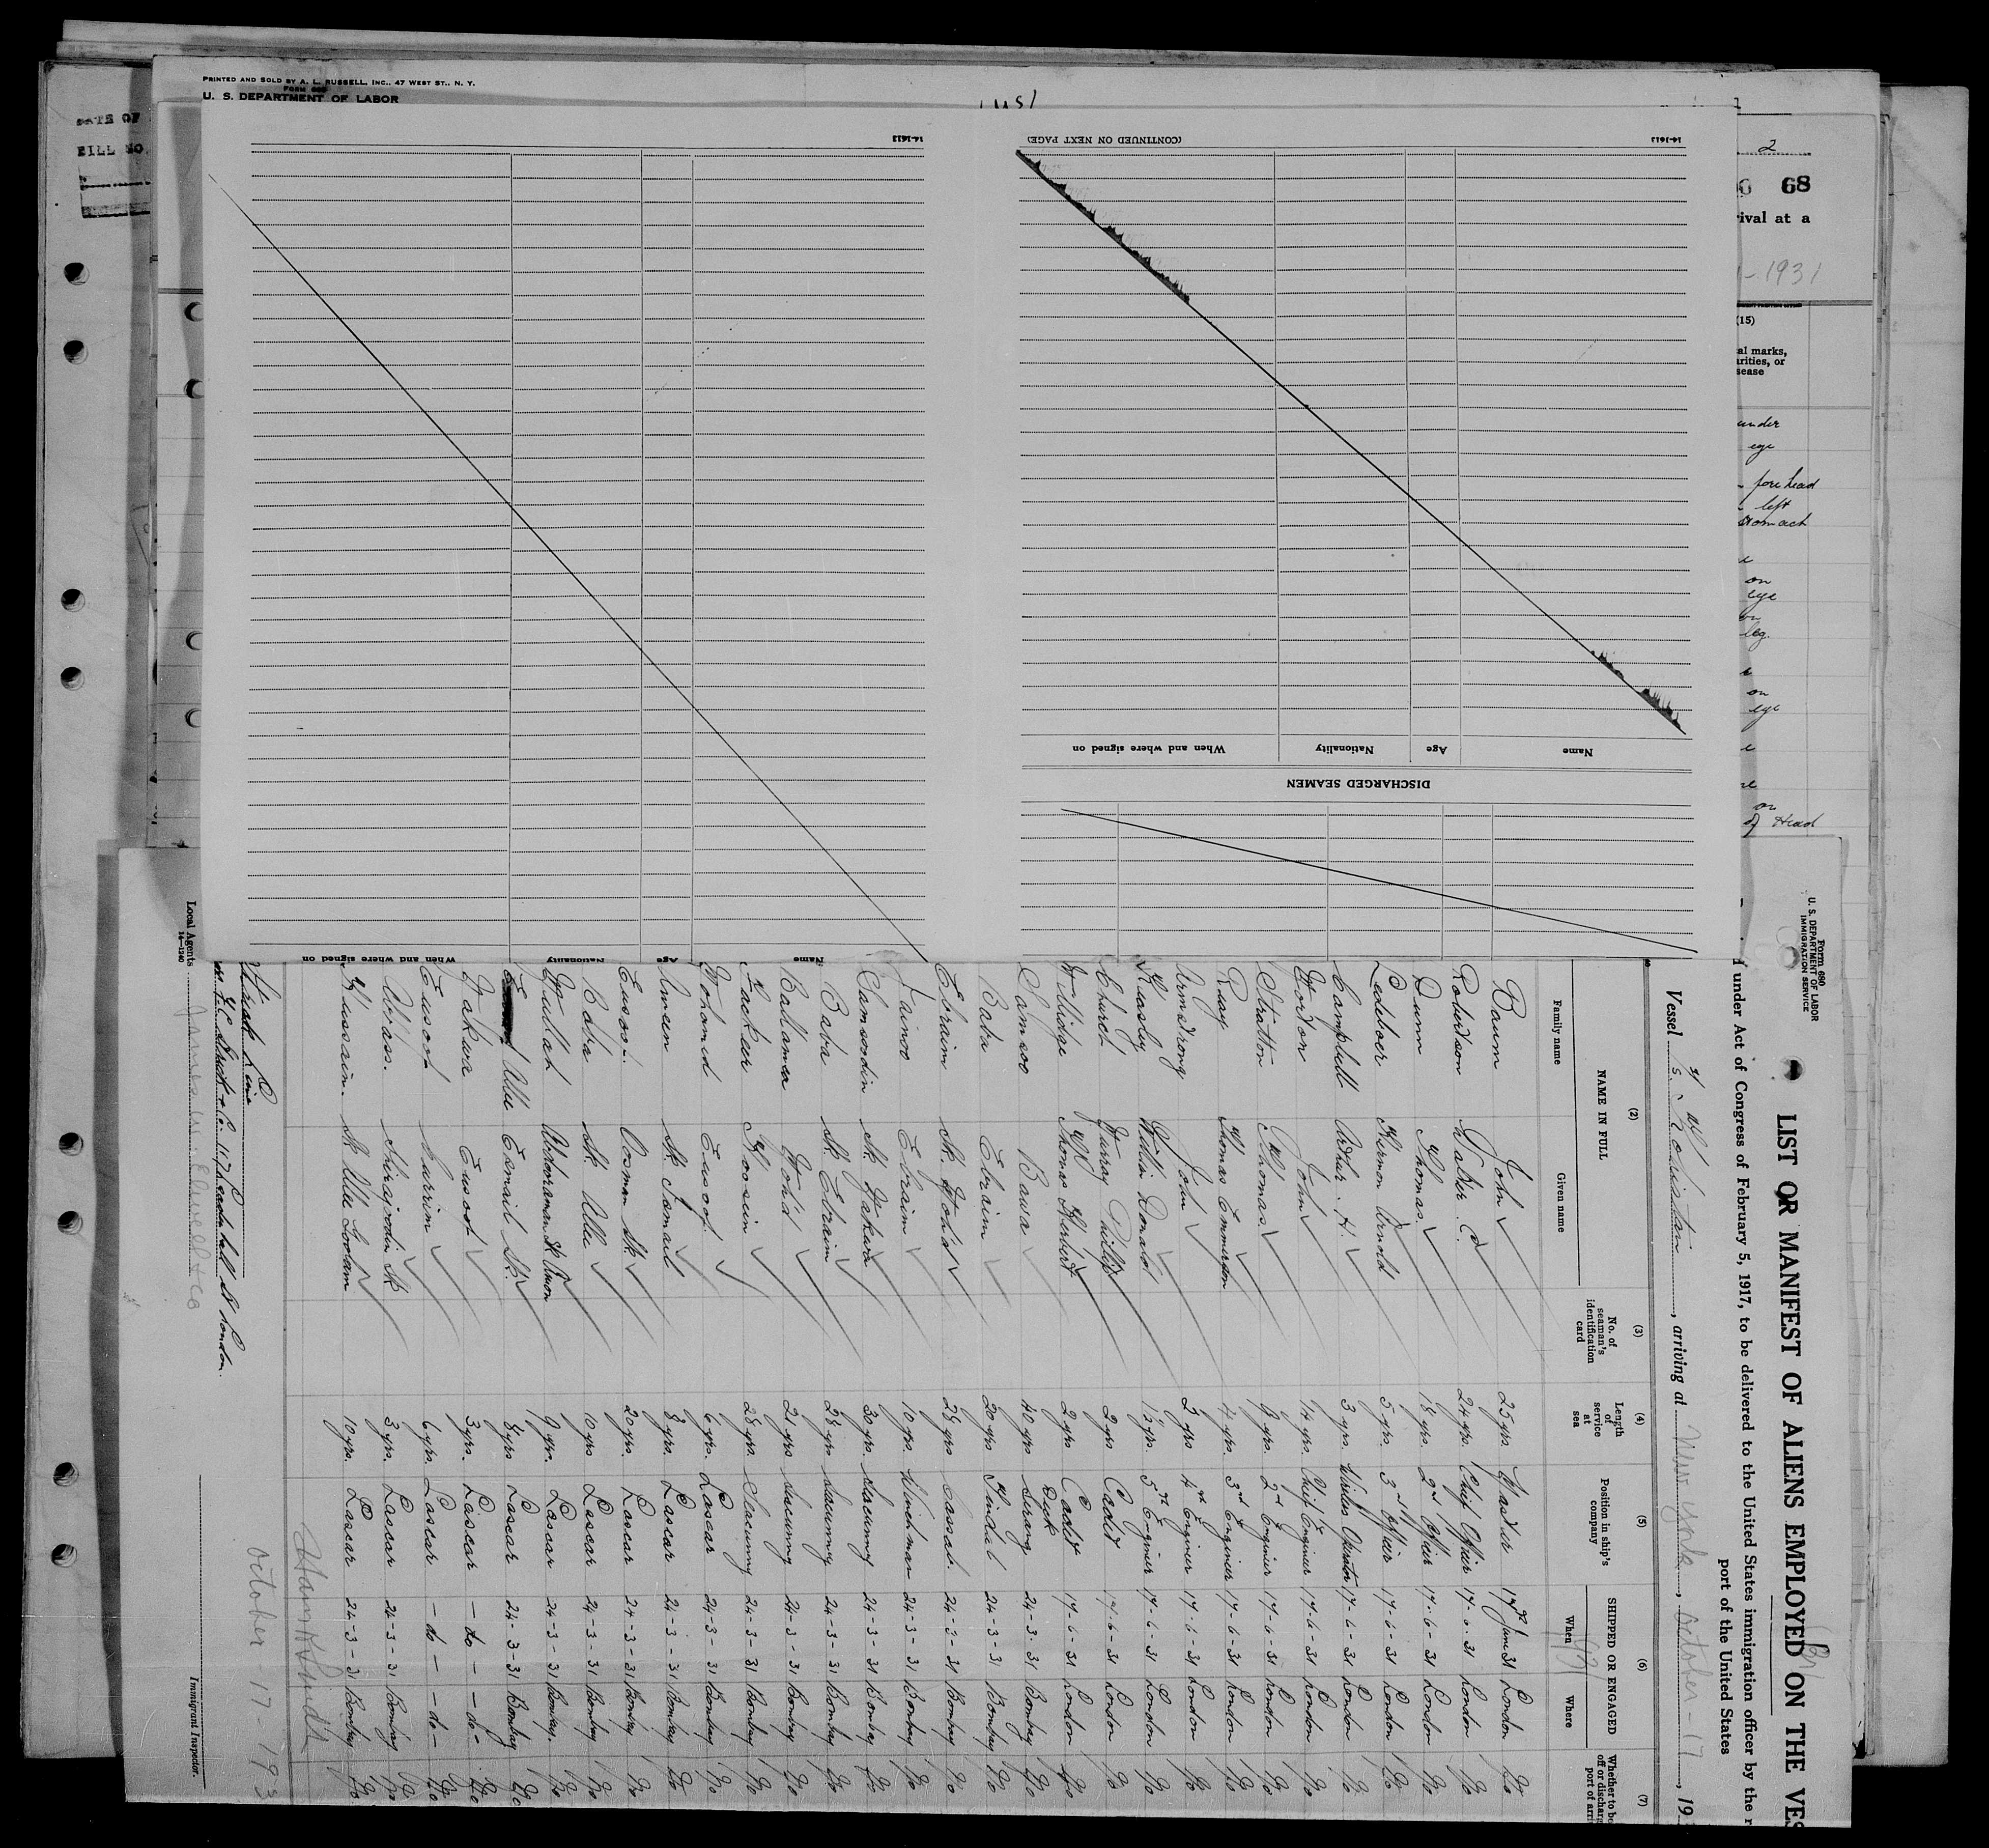 PRINTED AND SOLD BY A. L. RUSSELL, INC., 47 WEST ST., N. Y.
FORM 689
U. S. DEPARTMENT OF LABOR
DATE OF
BILL NO.
2
68
rival at a
- 1931
(15)
al marks,
arities, or
sease
under
eye
forehead
left
stomach
on
eye
on
leg.
on
eye
on
of Head
14-1613
(CONTINUED ON NEXT PAGE)
14-1613
Name
Age
Nationality
When and where signed on
DISCHARGED SEAMEN
Name
Age
Nationality
When and where signed on
Form 680
U. S. DEPARTMENT OF LABOR
IMMIGRATION SERVICE
LIST OR MANIFEST OF ALIENS EMPLOYED ON THE VES
under Act of Congress of February 5, 1917, to be delivered to the United States immigration officer by the r
port of the United States
Vessel s/s , arriving at New York, October - 17, 19
(2) (3) (4) (5) (6) (7)
NAME IN FULL
Family name Given name
No. of seaman's identification card
Length of service at sea
Position in ship's company
SHIPPED OR ENGAGED
When Where
1931
Whether to be
off or discharg
port of arri
Baum John 25 yrs. Master 17th June 31 London No
Robertson Walter. C. 24 yrs. Chief Officer 17-6-31 London No
Dunn Thomas. 18 yrs. 2nd Officer 17-6-31 London No
Ledeboer Hermon Arnold 5 yrs. 3rd Officer 17-6-31 London No
Campbell Arthur. H. 3 yrs. Wireless Operator 17-6-31 London No
Gordon John 14 yrs. Chief Engineer 17-6-31 London No
Stratton Thomas. 8 yrs. 2nd Engineer 17-6-31 London No
Ruay Thomas Emmerson 4 yrs. 3rd Engineer 17-6-31 London No
Armstrong John 2 yrs 4th Engineer 17-6-31 London No
Huxley William Donald 1½ yrs. 5th Engineer 17-6-31 London No
Church Murray Phillip 2 yrs Cadet 17-6-31 London No
Willidge Thomas Herbert 2 yrs Cadet 17-6-31 London No
Samsoo Bawa 40 yrs Deck Serang 24-3-31 Bombay No
Baba Ebraim 20 yrs Tindal 24-3-31 Bombay No
Ebraim Sk. Mohd 28 yrs Cassab. 24-3-31 Bombay No
Jainoo Ebraim 10 yrs. Winchman 24-3-31 Bombay No
Samsordin Sk. Yakub 30 yrs. Seacunny 24-3-31 Bombay No
Baba Sk. Ebraim 28 yrs Seacunny 24-3-31 Bombay No
Ballamia Mohd 21 yrs Seacunny 24-3-31 Bombay No
Fackeer Hoosein 28 yrs. Seacunny 24-3-31 Bombay No
Mohamed Eusoof. 6 yrs. Lascar 24-3-31 Bombay No
Ameen Sk. Ismail 8 yrs. Lascar 24-3-31 Bombay No
Eusoof. Oosman Sk. 20 yrs. Lascar 24-3-31 Bombay No
Boba Sk. Alle 10 yrs Lascar 24-3-31 Bombay No
Mullah Abdoraman 9 yrs. Lascar 24-3-31 Bombay. No
Alle Esmail Sk. 8 yrs Lascar 24-3-31 Bombay No
Yakub Eusoof 3 yrs. Lascar - do - - do - No
Eusoof Kurrim 6 yrs. Lascar - do - - do - No
Abbas. Shirajodin Sk. 3 yrs. Lascar 24-3-31 Bombay No
Hussain. Sk. Alle Goolam 10 yrs. Lascar 24-3-31 Bombay No
Strick Line
117 Leadenhall St London.
Local Agents James W. Elwell & Co
14-1240
October 17 - 193
Immigrant Inspector.